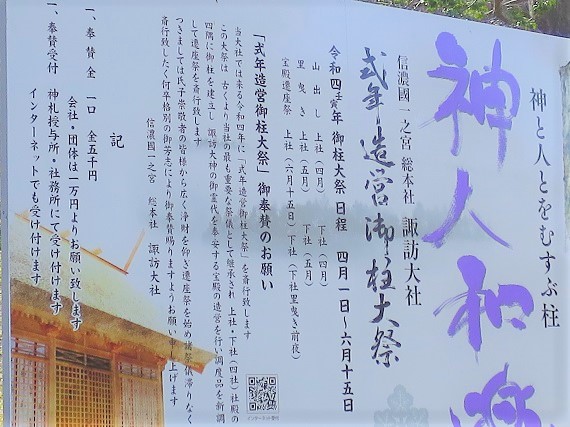 神と人とをむすぶ柱
神人和
信濃國一之宮 総本社 諏訪大社
式年造営御柱大祭
令和四寅年 御柱大祭 日程 四月一日～六月十五日
山出し 上社(四月) 下社(四月)
里曳き 上社(五月) 下社(五月)
宝殿遷座祭 上社(六月十五日)下社(下社里曳き前夜)
「式年造営御柱大祭」御奉賛のお願い
当大社では来る令和四年に「式年造営御柱大祭」を斎行致します
この大祭は 古くより当社の最も重要な祭儀として継承され 上社・下社(四社)社殿の
四隅に御柱を建立し 諏訪大神の御霊代を奉安する宝殿の造営を行い調度品を新調
して遷座祭を斎行致します
つきましては氏子崇敬者の皆様から広く浄財を仰ぎ遷座祭を始め諸祭儀滞りなく
斎行致したく何卒格別の御芳志により御奉賛賜りますようお願い申し上げます
信濃國一之宮 総本社 諏訪大社
記
一、奉賛金 一口 金五千円
会社・団体は一万円よりお願い致します
一、奉賛受付 神札授与所・社務所にて受け付けます
インターネットでも受け付けます